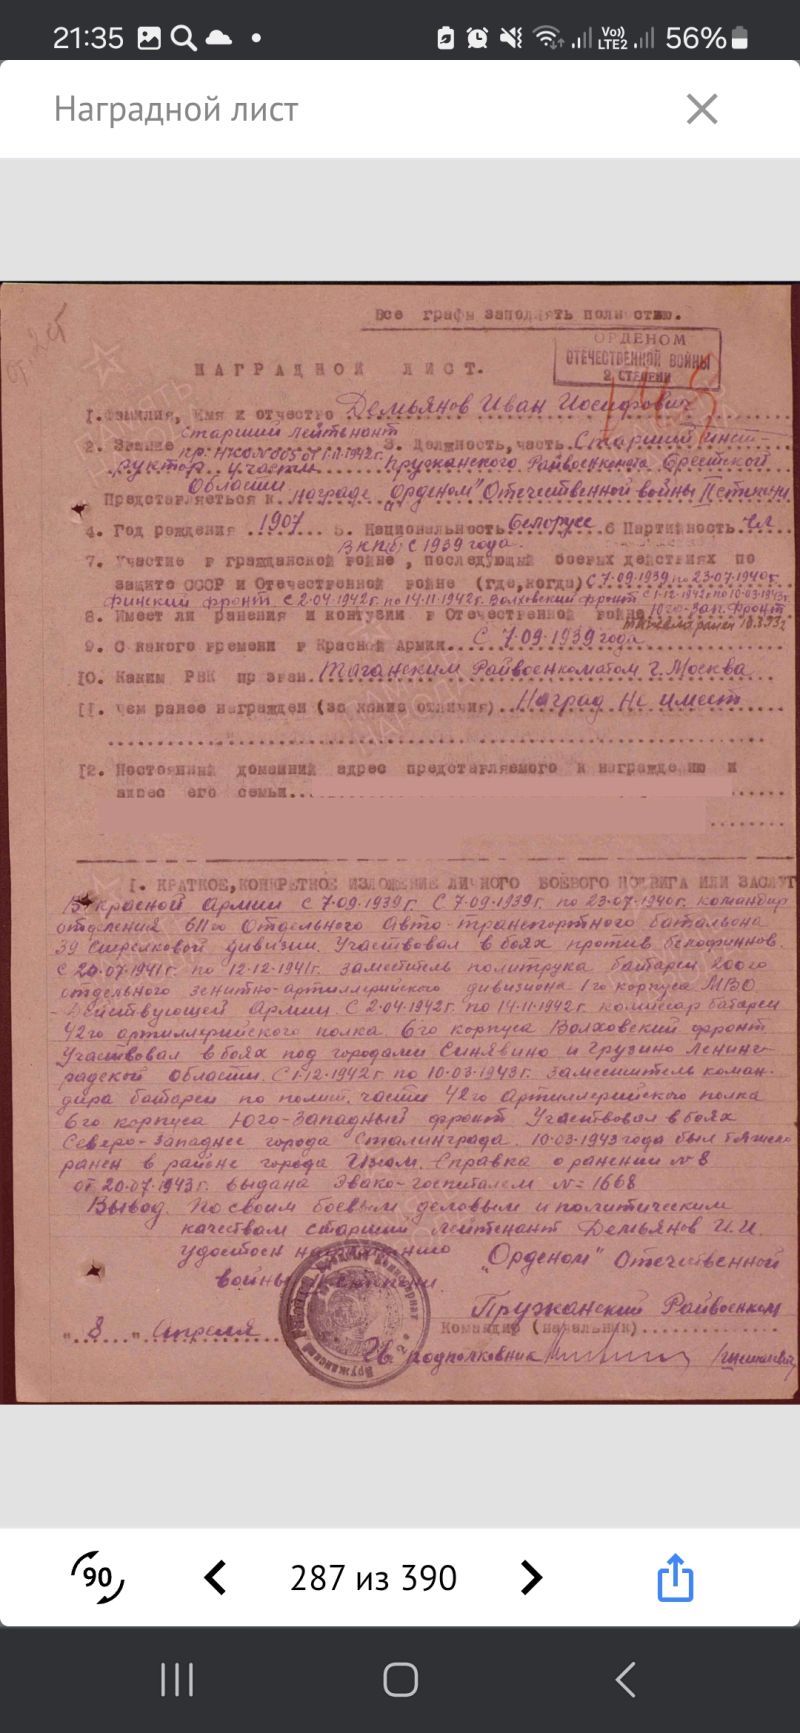 21:35
Vo))
LTE2
56%
Наградной лист
Все графы заполнять полностью.
от 2 ст
ОРДЕНОМ
ОТЕЧЕСТВЕННОЙ ВОЙНЫ
2 СТЕПЕНИ
НАГРАДНОЙ ЛИСТ.
I. Фамилия, Имя и отчество Демьянов Иван Иосифович
Старший лейтенант
2. Звание 3. Должность, часть Старший инст-
руктор 4 части Пружанского Райвоенкомата Брестской
Области.
Представляеться к награде "Орденом" Отечественной войны II степени
4. Год рождения 1907 5. Национальность Белорусс 6 Партийность чл
ВКП(б) с 1939 года.
7. Участие в гражданской войне, последующий боевых действиях по
защите СССР и Отечественной войне (где, когда) С 7.09.1939 по 23.07.1940г.
Финский фронт с 2.04.1942г. по 14.11.1942г. Волховский фронт с 1-12-1942г по 10-03-1943г.
Юго-Зап. Фронт
8. Имеет ли ранения и контузии в Отечественной войне
тяжело ранен 10.3.43г
9. С какого времени в Красной Армии С 7.09.1939 года
10. Каким РВК призван. Таганским Райвоенкоматом г. Москва
II. чем ранее награжден (за какие отличия) Наград не имеет
12. Постоянный домашний адрес представляемого к награждению и
адрес его семьи
I. КРАТКОЕ, КОНКРЕТНОЕ ИЗЛОЖЕНИЕ ЛИЧНОГО БОЕВОГО ПОДВИГА ИЛИ ЗАСЛУГ
В красной Армии с 7.09.1939г. С 7.09.1939г. по 23.07.1940г. командир
отделения 611го Отдельного Авто-транспортного батальона
39 Стрелковой дивизии. Участвовал в боях против белофиннов.
С 20.07.1941г. по 12-12-1941г. заместитель политрука батареи 200го
отдельного зенитно-артиллерийского дивизиона 1го корпуса МВО.
- Действующей Армии с 2.04.1942г. по 14.11.1942г. комиссар батареи
42го артиллерийского полка 6го корпуса Волховский фронт
Участвовал в боях под городами Синявино и Грузино Ленинг-
радской области. С 1-12-1942г. по 10-03-1943г. Заместитель коман-
дира батареи по полит. части 42го Артиллерийского полка
6го корпуса Юго-Западный фронт Участвовал в боях
Северо-Западнее города Сталинграда. 10-03-1943 года был тяжело
ранен в районе города Изюм. Справка о ранении №8
от 20.07.1943г. выдана Эвако-госпиталем №=1668
Вывод. По своим боевым деловым и политическим
качествам старший лейтенант Демьянов И.И.
удостоен награждению "Орденом" Отечественной
войны степени.
Пружанский Райвоенком
"8" апреля Командир (начальник)
Гв. подполковник
287 из 390
90